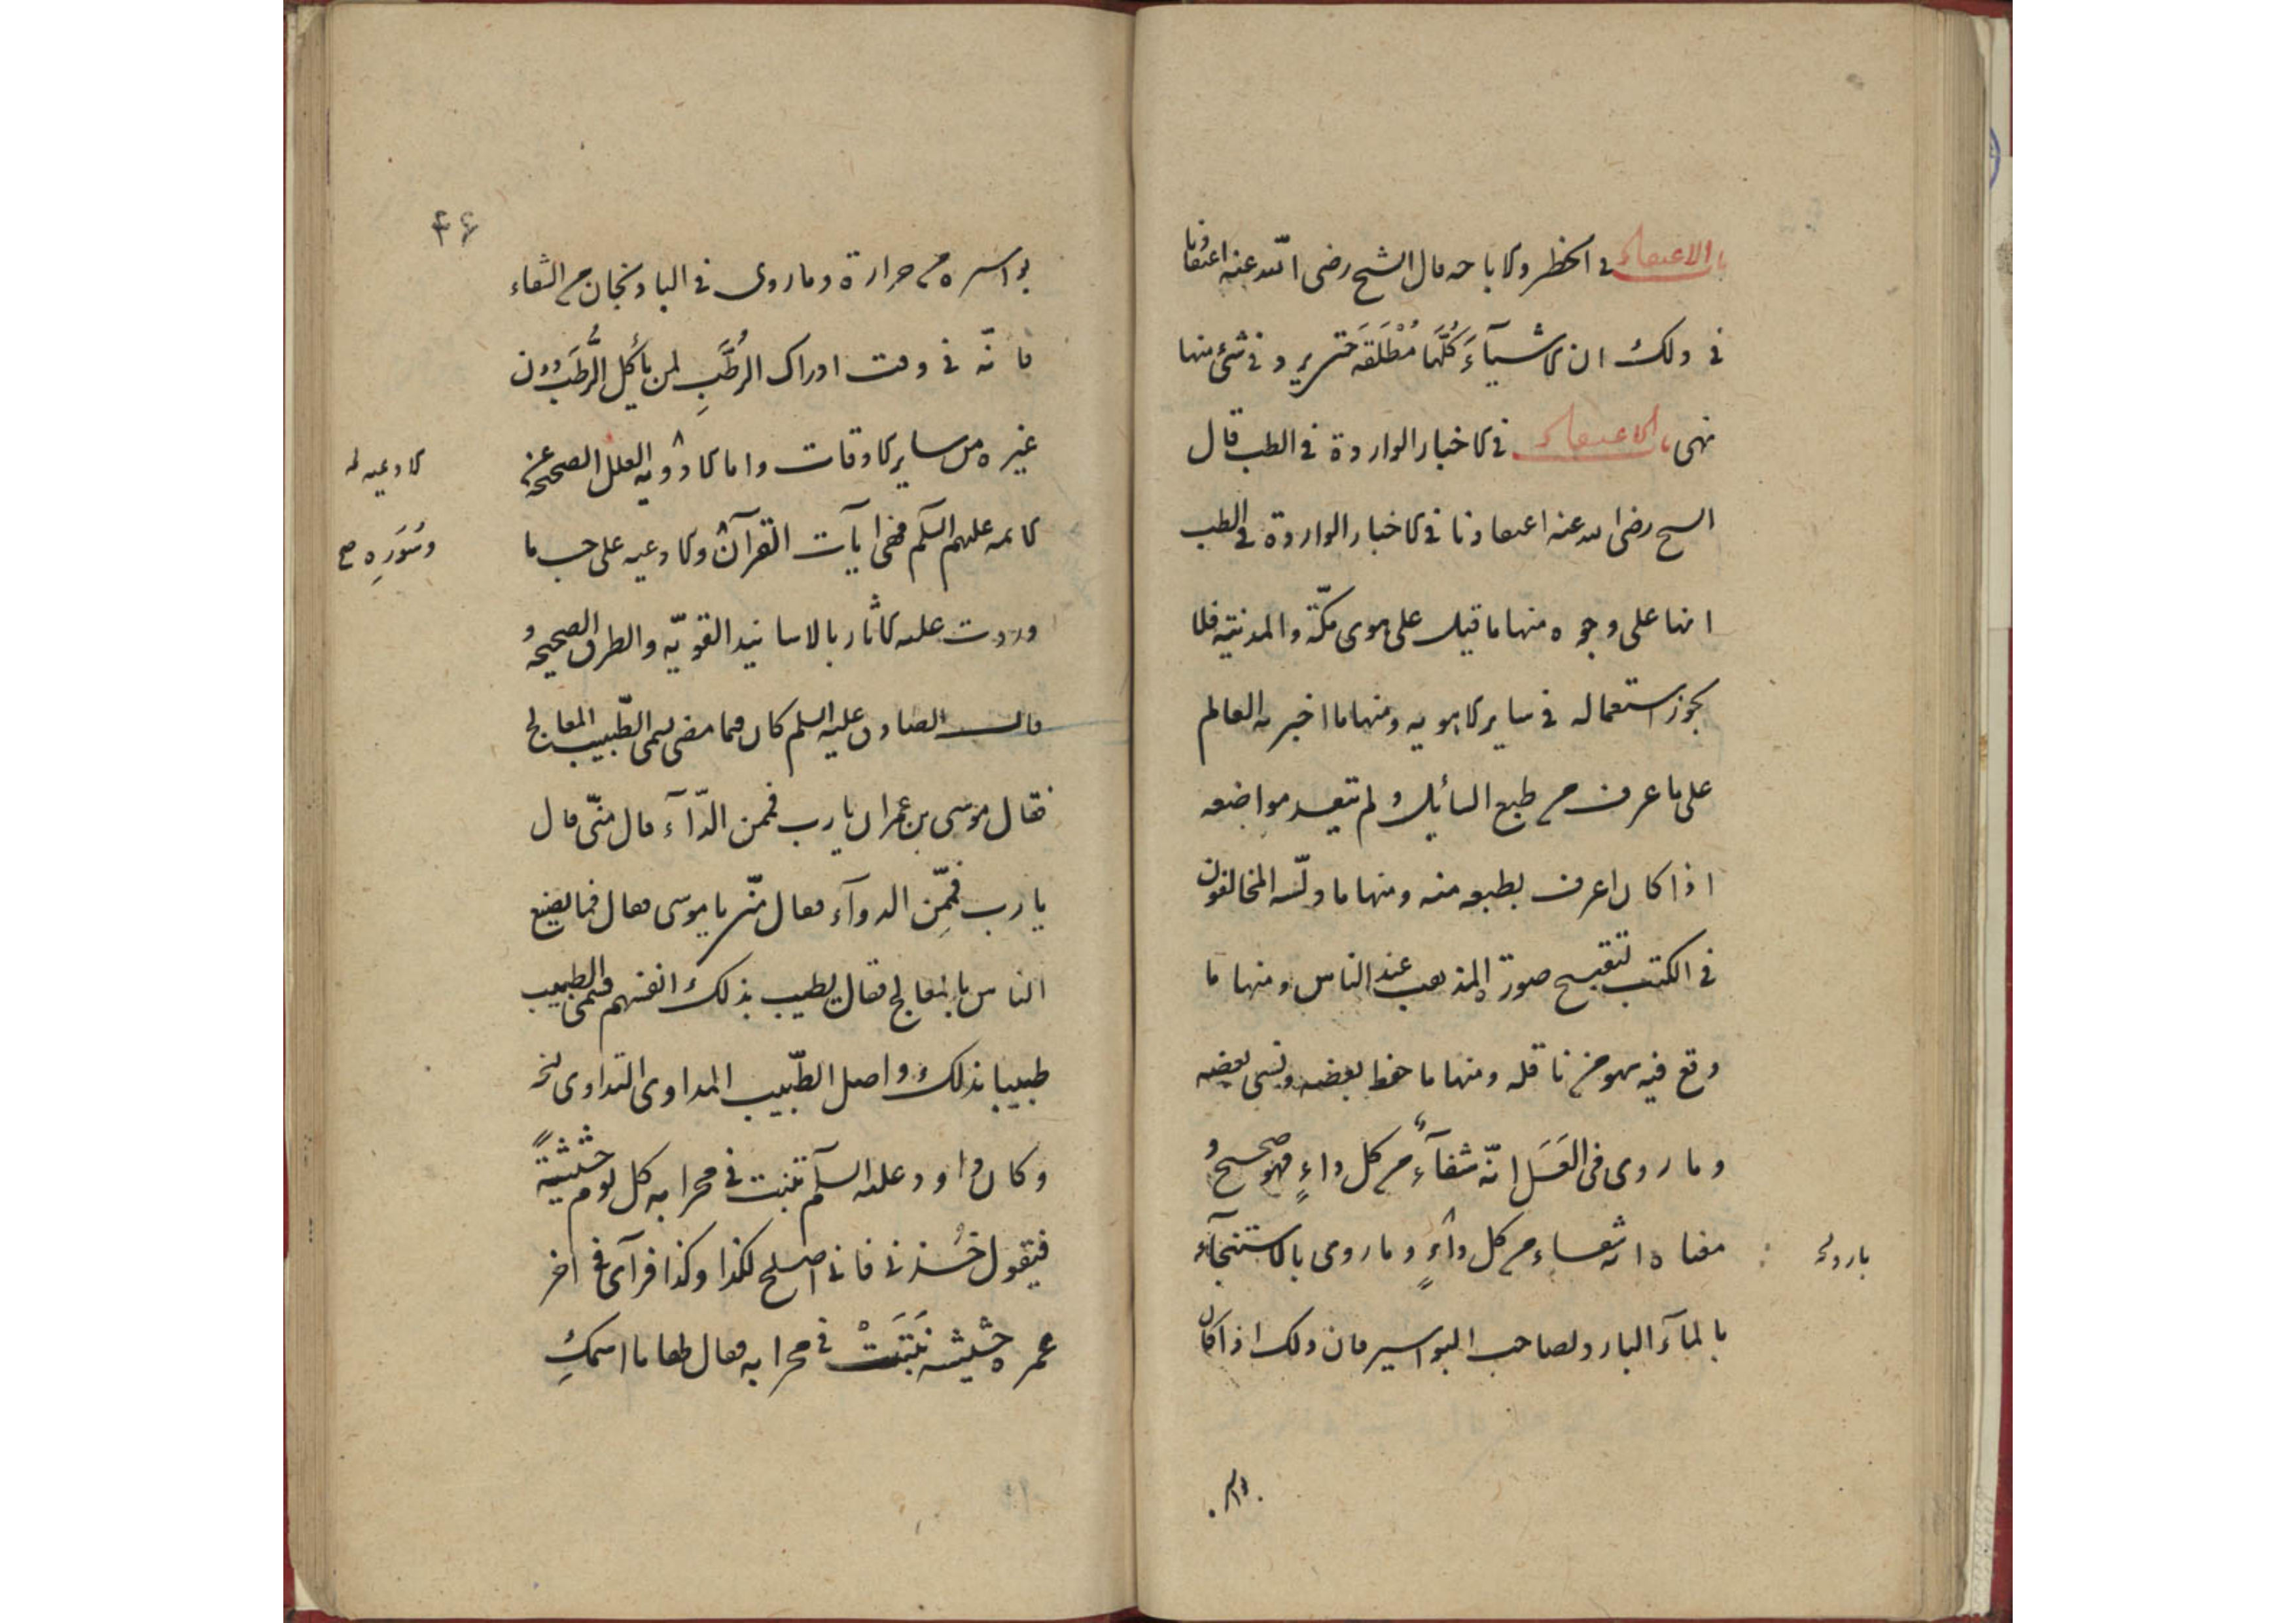 باب الاعتقاد في الحظر والاباحه قال الشيخ رضى الله عنه اعتقادنا
في ذلك ان الاشيآءَ كُلَّهَا مُطْلَقَه حَتى يرد فى شئ منها
نهى باب الاعتقاد فى الاخبار الواردة فى الطب قال
الشيخ رضى الله عنه اعتقادنا فى الاخبار الواردة فى الطب
انها على وجوه منها ما قيل على هوى مكّة والمدينة فلا
يجوز استعماله فى ساير الاهويه ومنها ما اخبر به العالم
على ما عرف من طبع السائل ولم يتعد مواضعه
اذا كان اعرف بطبعه منه ومنها ما دلّسه المخالفون
فى الكتب لتقبيح صورة المذهب عند الناس ومنها ما
وقع فيه سهو من ناقله ومنها ما حفظ بعضه ونسى بعضه
وما روى فى العَسَل انّه شفآءٌ من كل داءٍ فهو صحيح و
معناه انه شفاء من كل داءٍ بارد وما روى بالاستنجآء
بالمآء البارد لصاحب البواسير فان ذلك اذا كان
بواسره من حرارة وما روى فى الباذنجان من الشفاء
فانّه فى وقت ادراك الرُطَبِ لمن يأكل الرُّطَب دون
غيره من ساير الاوقات واما الادويه العلل الصحيحة عن
الائمه عليهم السلم فهى ايآت القرآن والادعيه على حسب ما
الادعيه
وسُوَرِه صح
وردت عليه الاثار بالاسانيد القويّه والطرق الصحيحه و
قال الصادق عليه السلم كان فيما مضى يسمى الطّبيب المعالج
فقال موسى بن عمران يا رب فممن الدّآء قال منّى قال
يا رب فممّن الدوآء فقال منّى يا موسى فقال فما يصنع
الناس بالمعالج فقال يطيب بذلك انفسهم فسمى الطبيب
طبيبا بذلك واصل الطّبيب المداوى التداوى
وكان داود عليه السلم تنبت فى محرابه كل يوم حشيشةً
فيقول خُذنى فانى اصلح لكذا وكذا فرآى فى اخر
عمره حشيشه نَبَتَتْ فى محرابه فقال لها ما اسمكِ